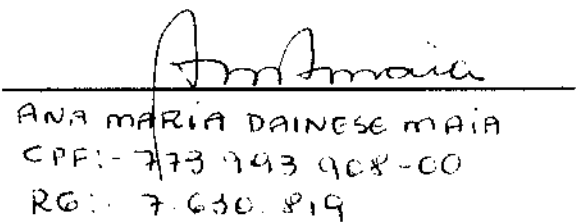 Anamaia
ANA MARIA DAINESE MAIA
CPF:- 773 993 908-00
RG:. 7.630.819